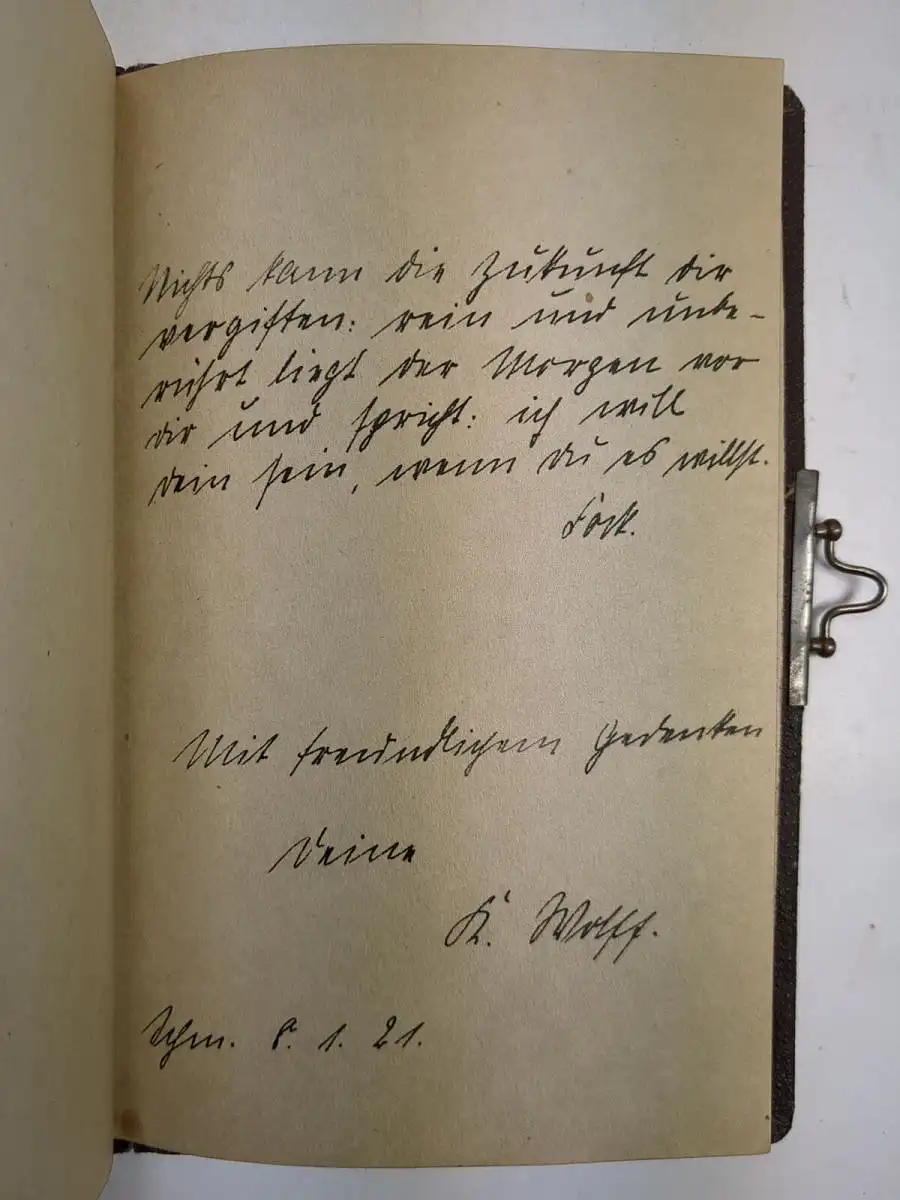 Nichts kann die Zukunft dir
vergiften: rein und unbe-
rührt liegt der Morgen vor
dir und spricht: ich will
dein sein, wenn du es willst.
Fock.
Mit freundlichem Gedenken
Deine
K. Wolff.
Schm. 8. 1. 21.